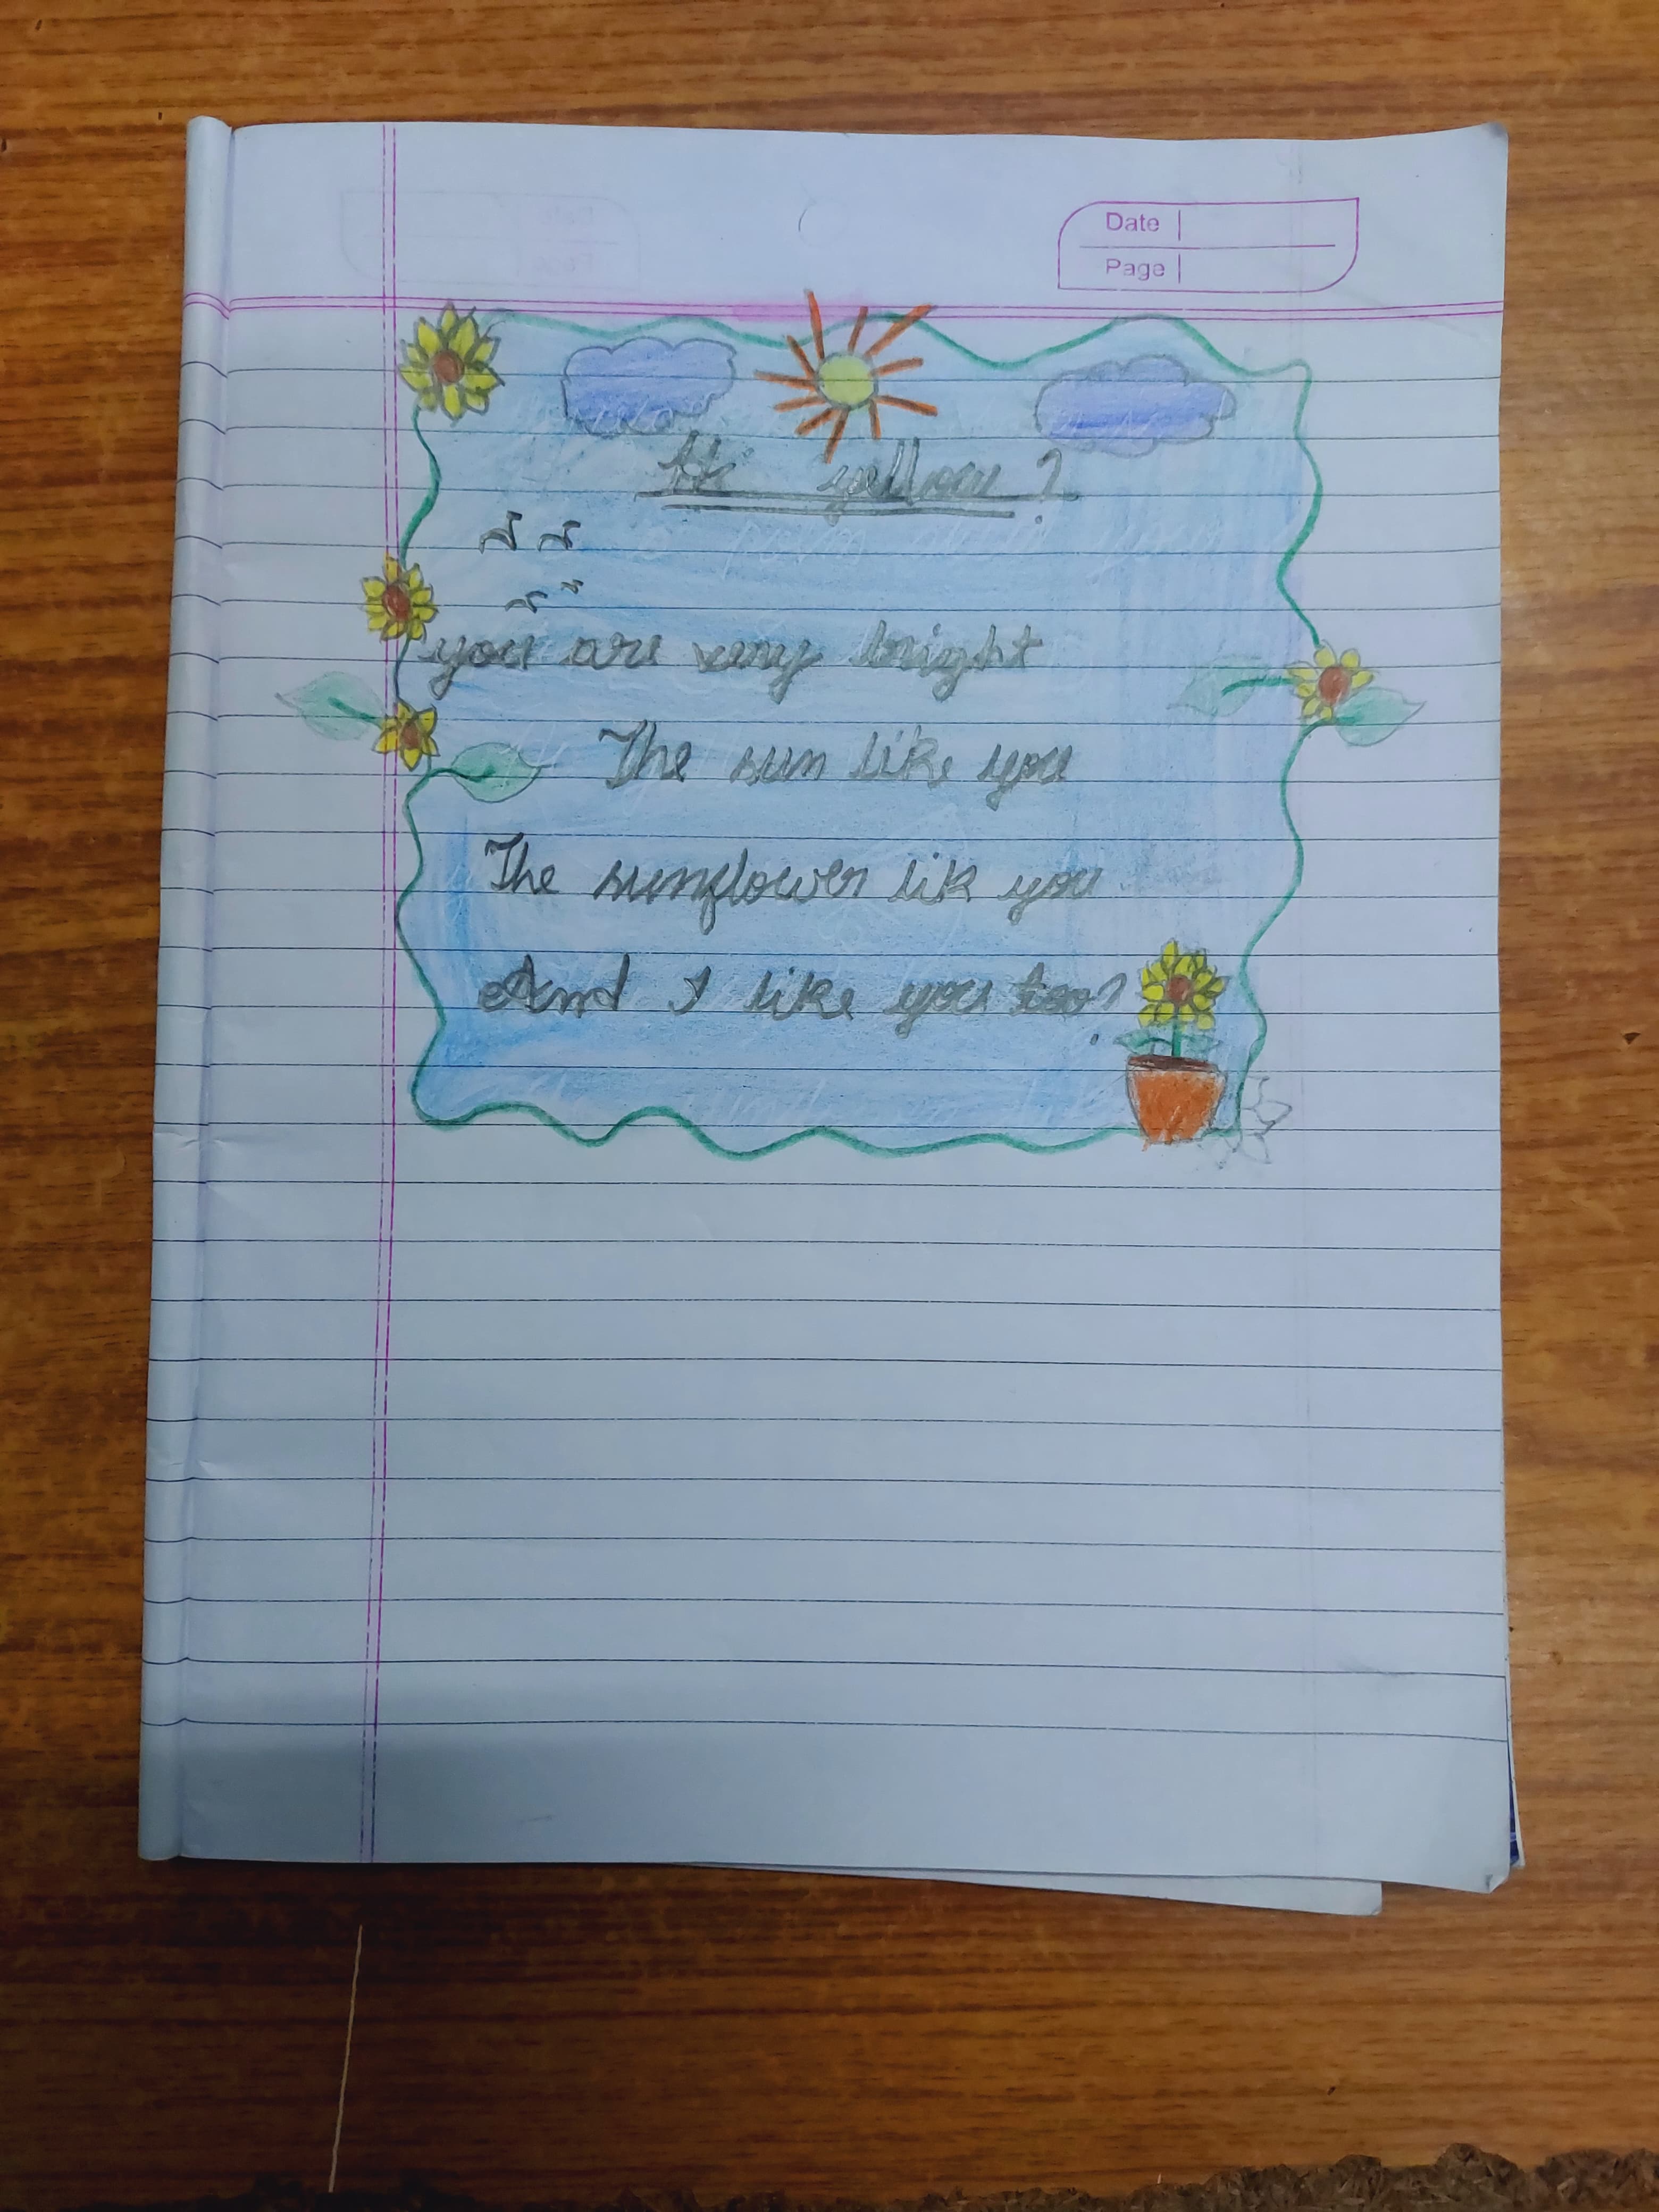 Date
Page
Hi yellow?
you are very bright
The sun like you
The sunflower lik you
And I like you too?